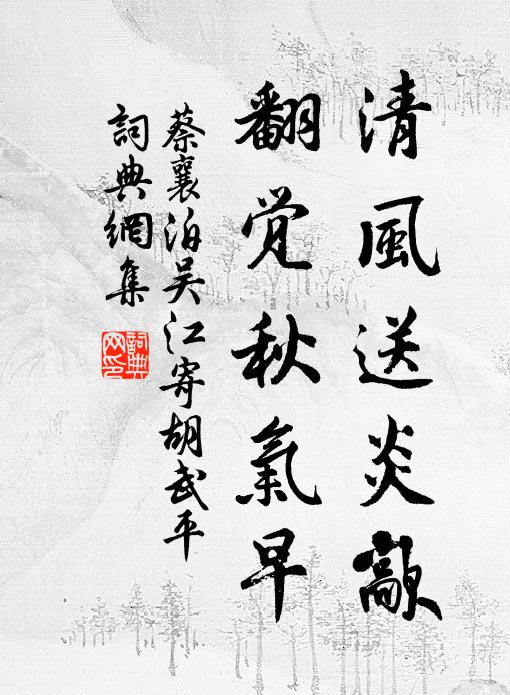 清風送炎歊
翻覺秋氣早
蔡襄泊吴江寄胡武平
詞典網集
詞典網印